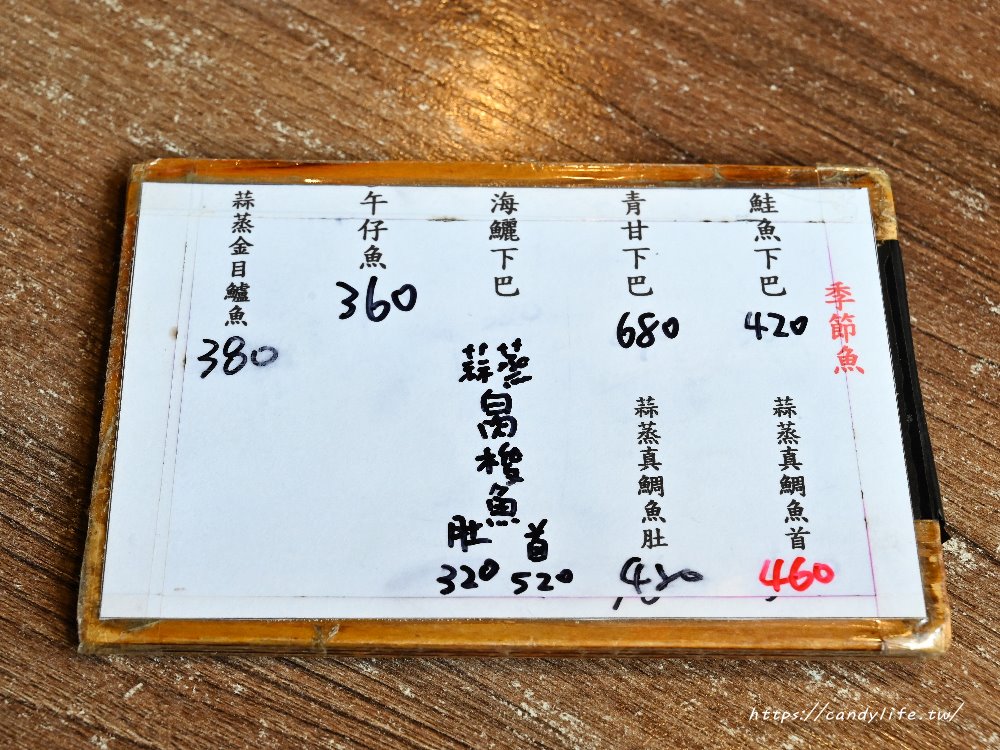 季節魚
鮭魚下巴
420
蒜蒸真鯛魚首
460
青甘下巴
680
蒜蒸真鯛魚肚
480
海鱺下巴
蒜蒸
烏梭魚
肚 首
320 520
午仔魚
360
蒜蒸金目鱸魚
380
https://candylife.tw/